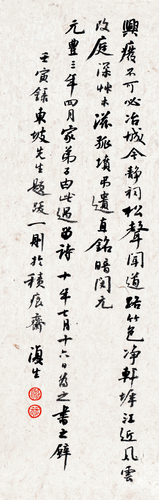 興廢不可必冶城今静祠松聲聞道路竹色净軒墀江近風雲
改庭深草木滋孤墳弔遺直銘暗闕元
元豐三年四月家弟子由此過留詩十年七月十六日為之書之辟
壬寅錄東坡先生題跋一則於積痕齋 滇生